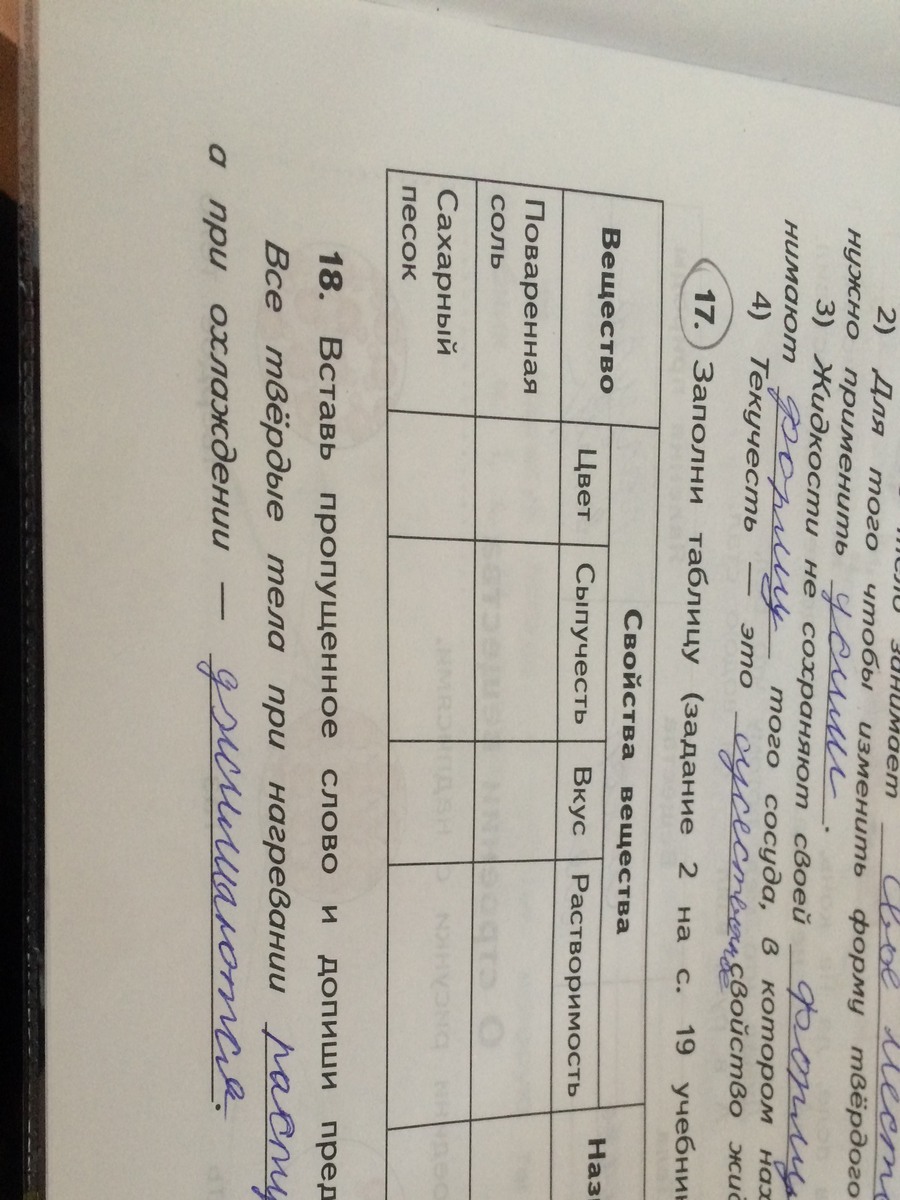 занимает
2) Для того чтобы изменить форму твёрдого
нужно применить усили.
3) Жидкости не сохраняют своей форму
нимают форму того сосуда, в котором наз
4) Текучесть — это свойство жи
17. Заполни таблицу (задание 2 на с. 19 учебни
Вещество Свойства вещества Наз
Цвет Сыпучесть Вкус Растворимость
Поваренная
соль
Сахарный
песок
18. Вставь пропущенное слово и допиши пред
Все твёрдые тела при нагревании расши
а при охлаждении —